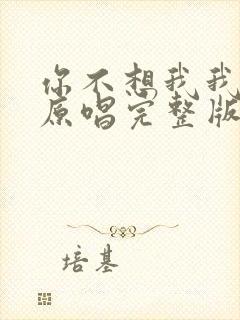 你不想我我
原唱完整版
培基